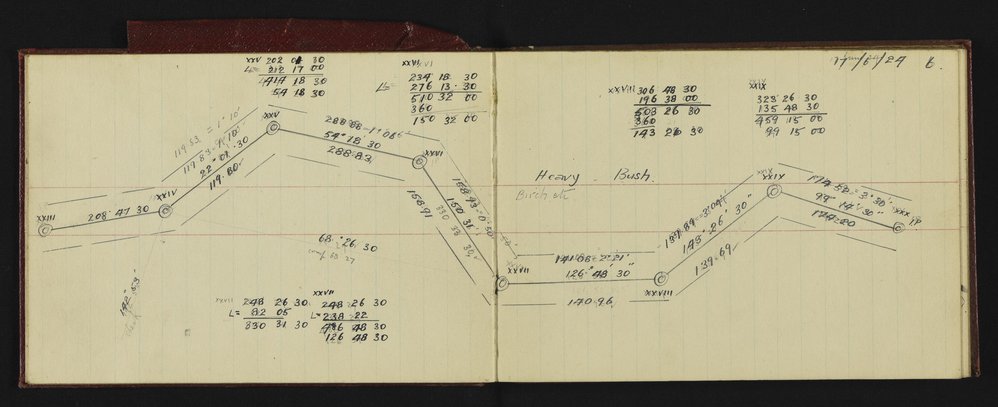 XXV 202 01 30
L= 212 17 00
414 18 30
54 18 30
XXVI
234 18 30
L= 276 13 30
510 32 00
360
150 32 00
XXVIII 306 48 30
196 38 00
503 26 30
360
143 26 30
XXIX
323 26 30
135 48 30
459 15 00
99 15 00
/24 6.
119.53 = 1° 10
22° 01' 30
119.80
XXV
54° 18 30
288.83
XXVI
XXIV
XXIII
208 47 30
158.93 = 0° 50'
150° 31
158.91
Heavy Bush.
Birch etc
XXVII
141.08 = 2° 21'
126° 48 30"
140.96
XXVIII
143° 26' 30"
139.69
XXIX
174.52 = 3° 30'
99° 14' 30"
XXX
68° 26 30
142.53
XXVII
248 26 30
L= 82 05
330 31 30
XXVII
248 26 30
L= 238 22
486 48 30
126 48 30